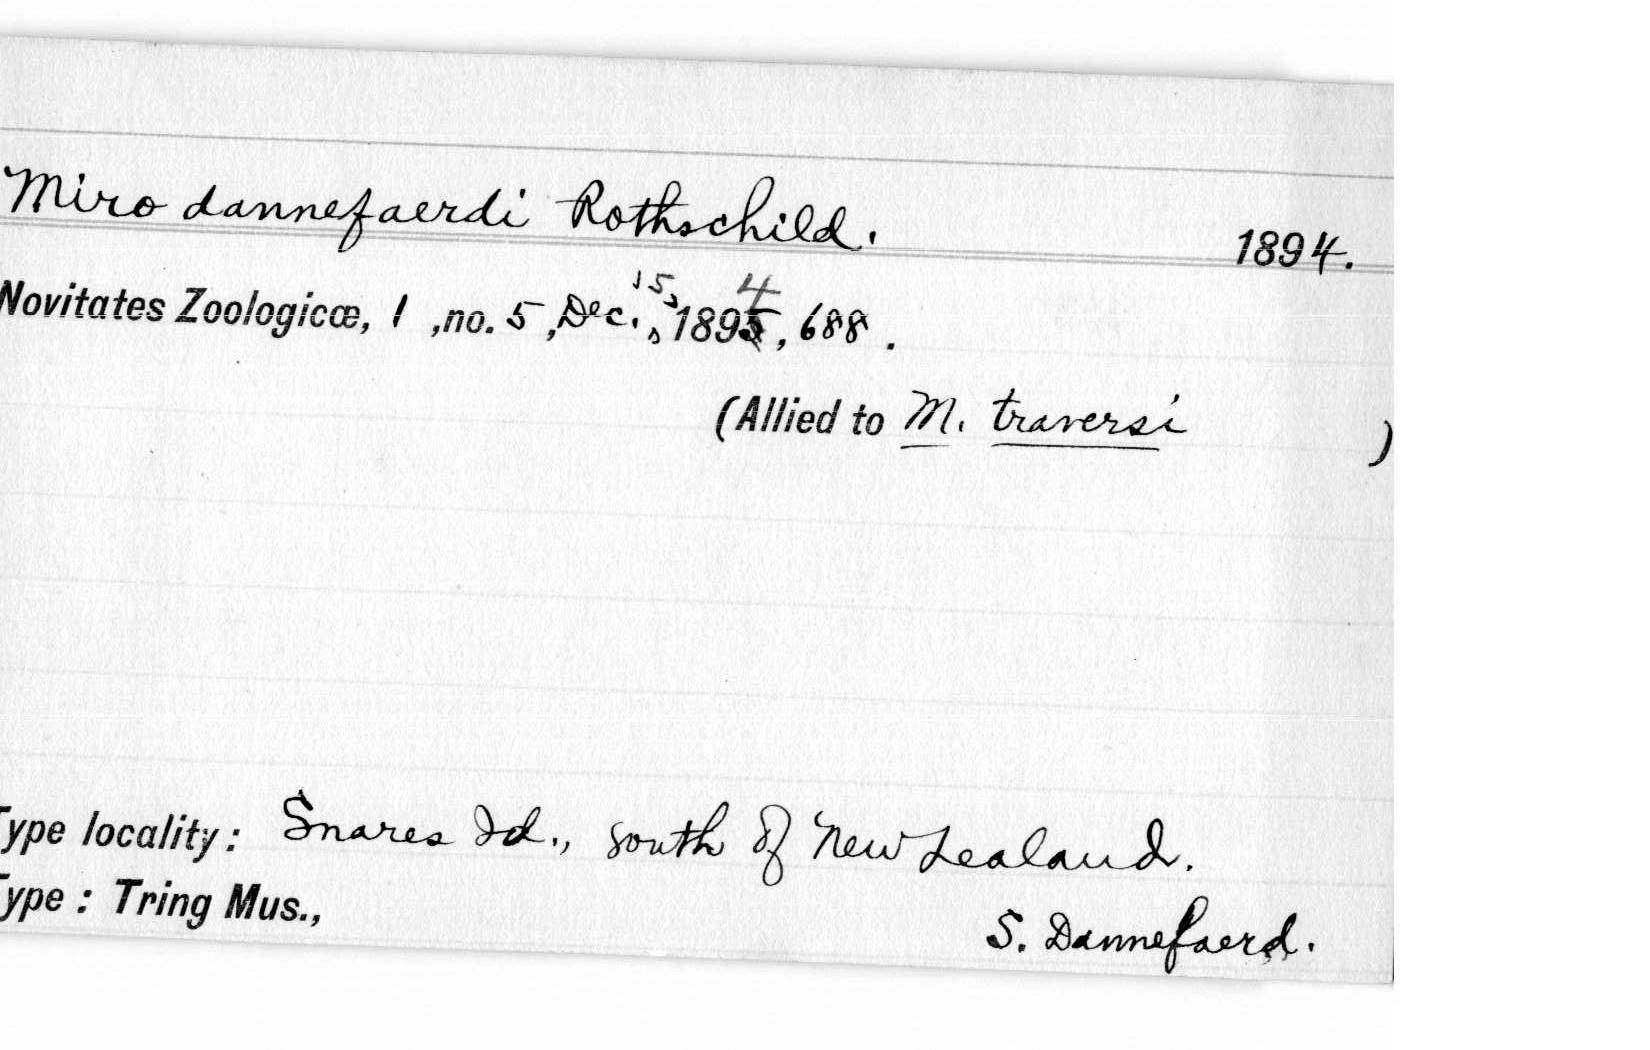 Miro dannefaerdi Rothschild. 1894.
Novitates Zoologicæ, 1 , no. 5 , Dec. 15, , 1894 , 688 .
(Allied to M. traversi )
Type locality: Snares Id., south of New Zealand.
Type : Tring Mus.,
S. Dannefaerd.